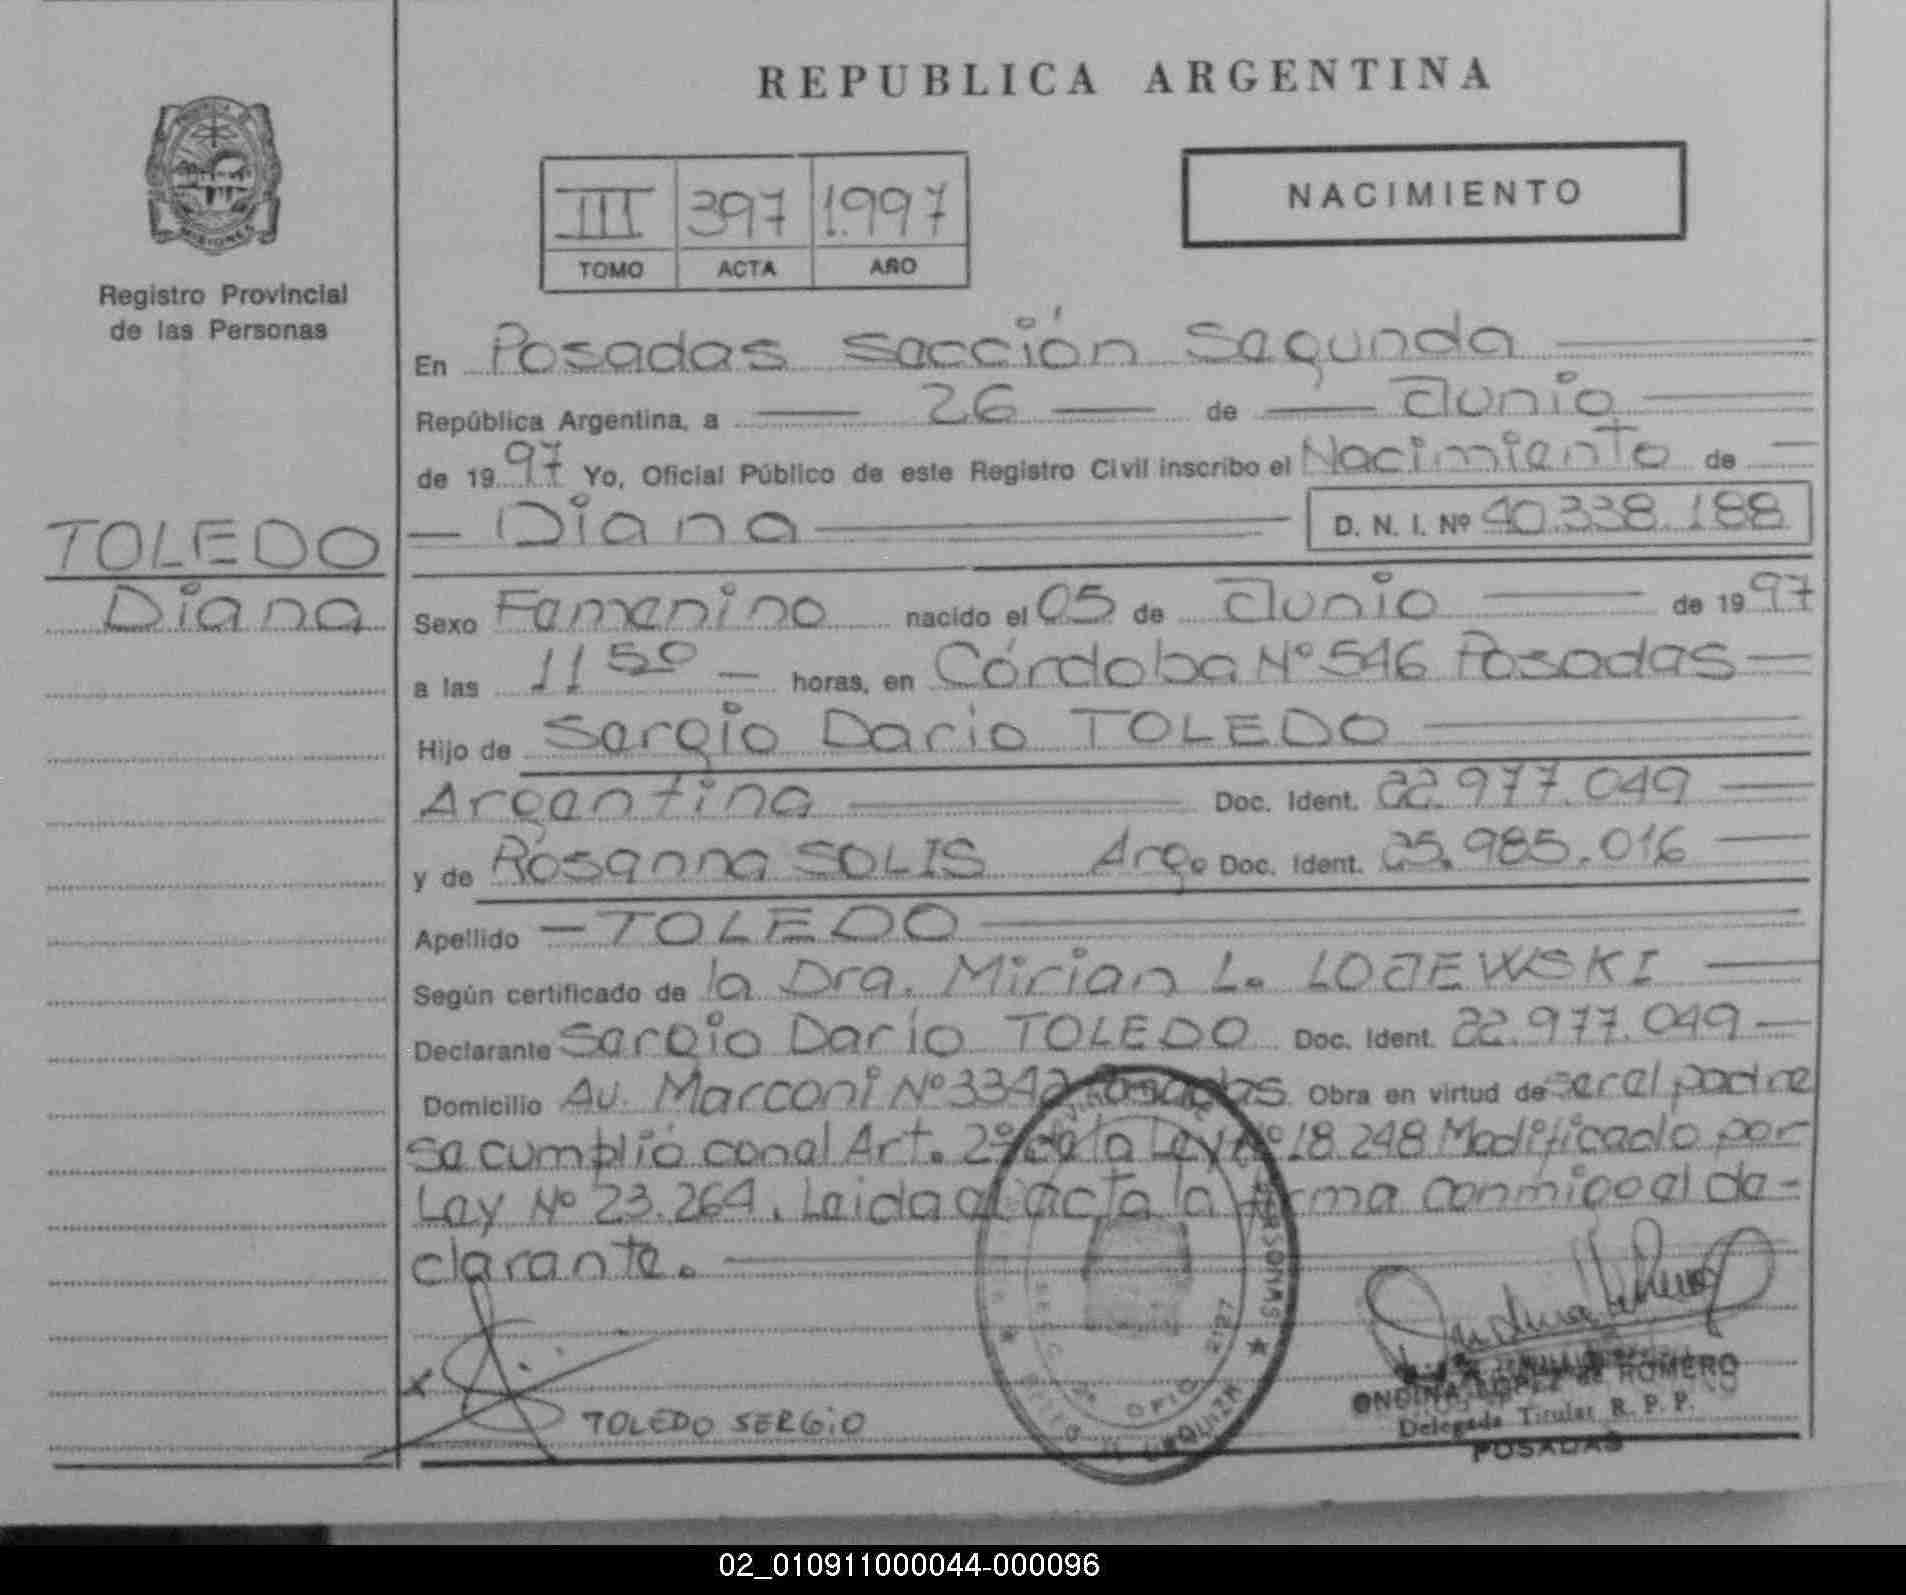 REPUBLICA ARGENTINA
NACIMIENTO
III 397 1.997
TOMO ACTA AÑO
MISIONES
Registro Provincial
de las Personas
En Posadas Sección Segunda
República Argentina, a 26 de Junio
de 1997 Yo, Oficial Público de este Registro Civil inscribo el Nacimiento de
TOLEDO
Diana
Diana D. N. I. Nº 40.338.188
Sexo Femenino nacido el 05 de Junio de 1997
a las 11 50 horas, en Córdoba Nº 546 Posadas
Hijo de Sergio Dario TOLEDO
Argentina Doc. Ident. 22.977.049
y de Rosanna SOLIS Arg. Doc. Ident. 25.985.016
Apellido TOLEDO
Según certificado de la Dra. Mirian L. LOJEWSKI
Declarante Sergio Darío TOLEDO Doc. Ident. 22.977.049
Domicilio Av. Marconi Nº 3342 Posadas Obra en virtud de ser el padre
se cumplió con el Art. 2º de la Ley Nº 18.248 Modificado por
Ley Nº 23.264. Leida el acta la firma conmigo el de-
clarante.
TOLEDO SERGIO
ONDINA LOPEZ de ROMERO
Delegada Titular R. P. P.
POSADAS
02_010911000044-000096